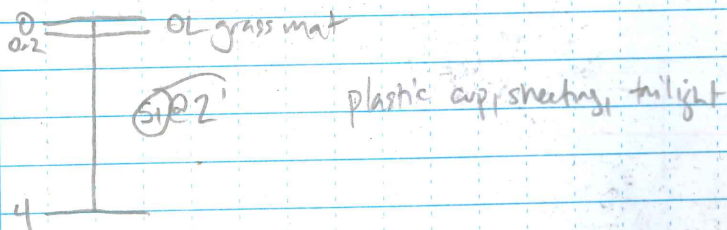 0 OL grass mat
0.2
S1 @ 2' plastic cup, sheeting, tailight
4